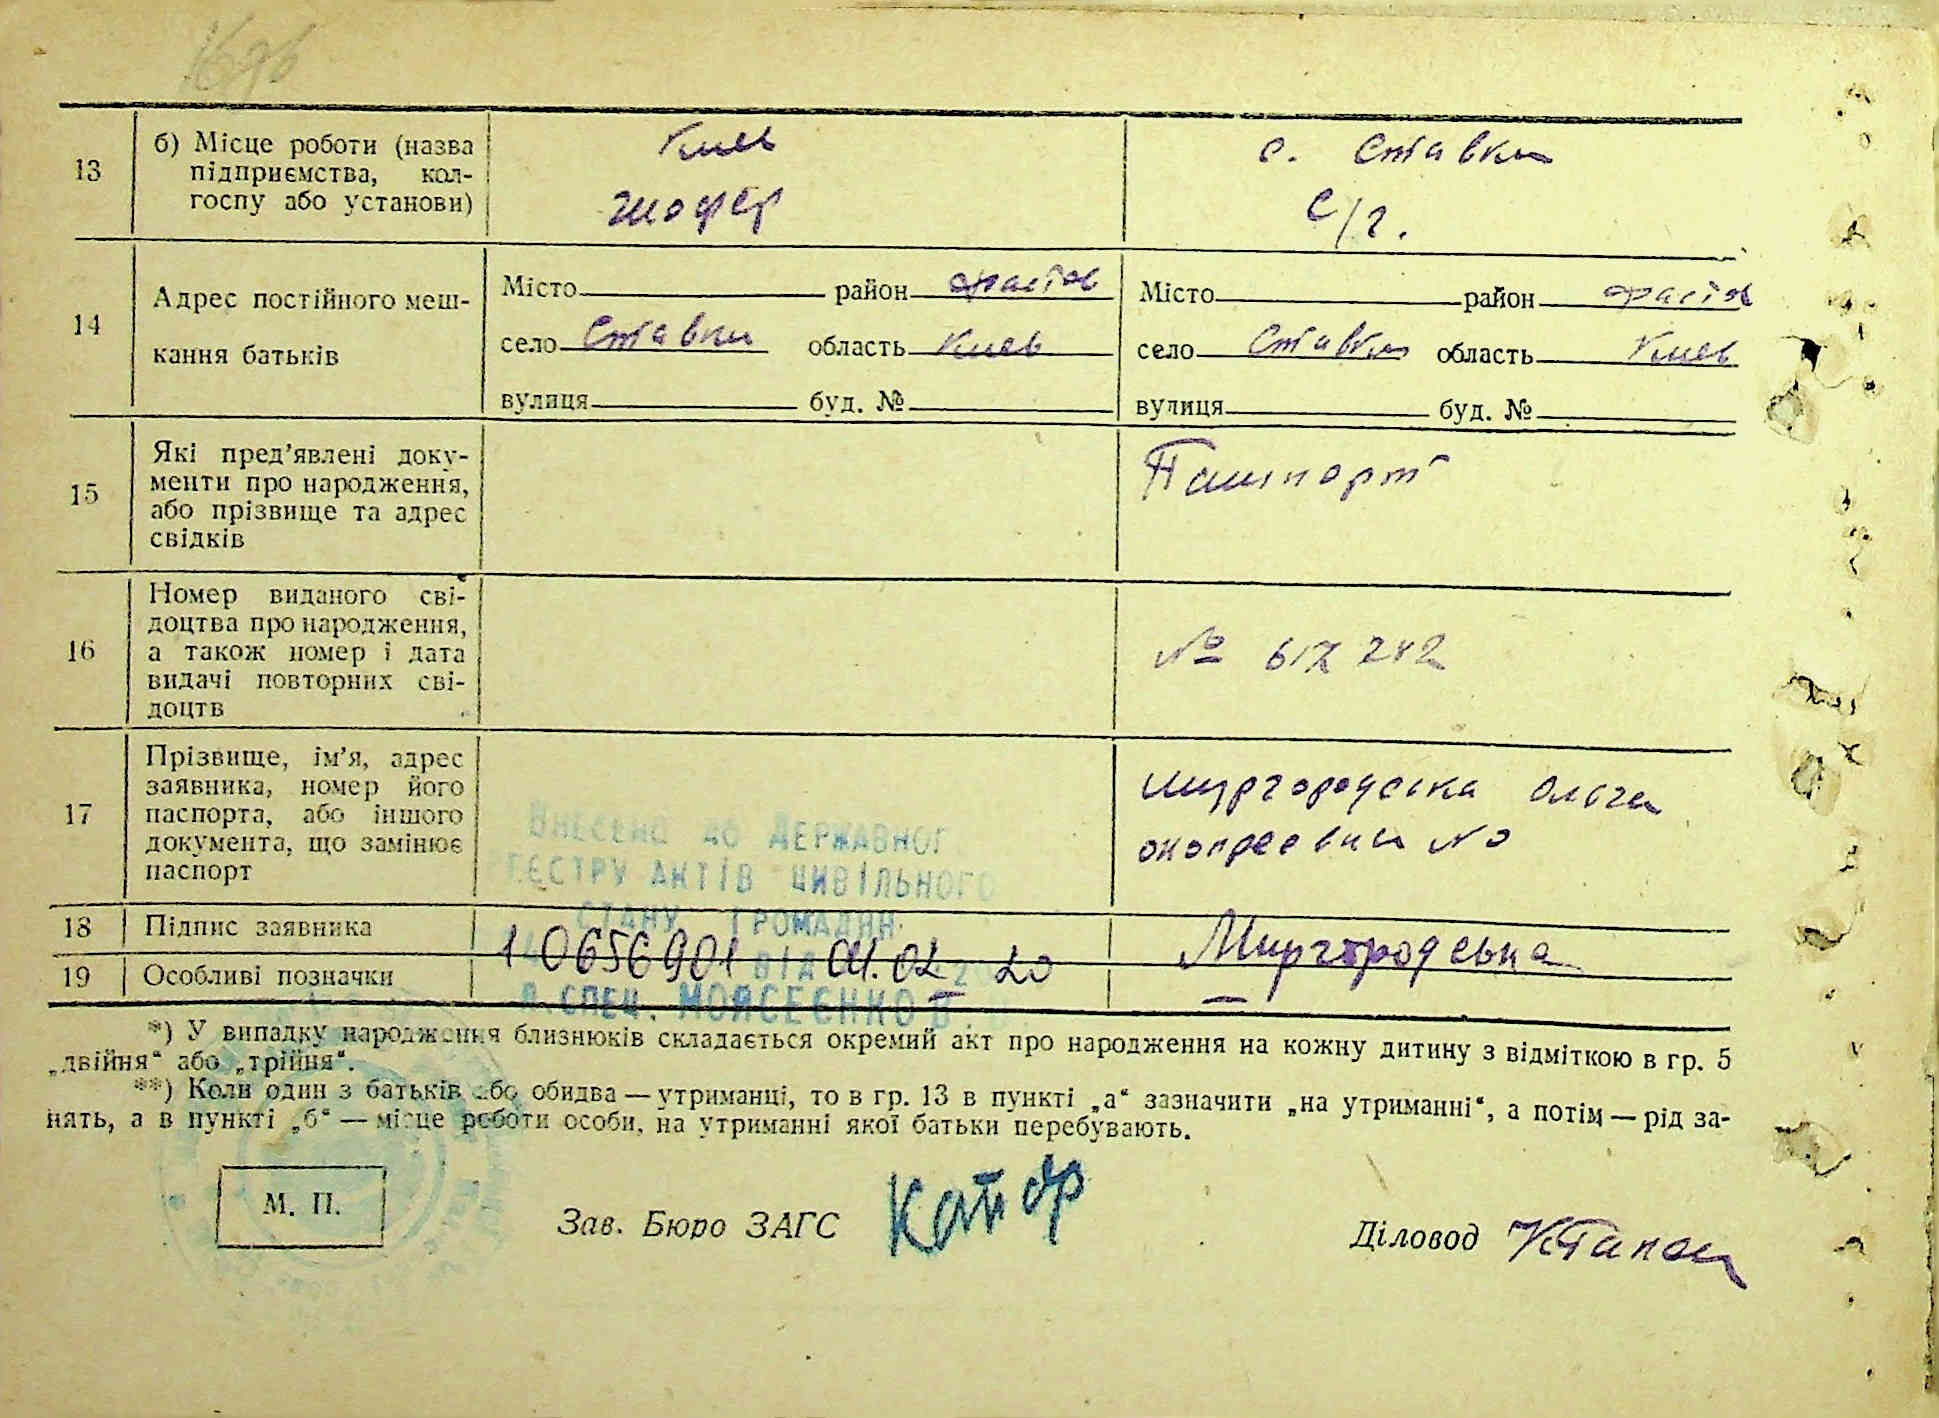 13 б) Місце роботи (назва
підприємства, кол-
госпу або установи)
Киев
шофер
с. Ставки
с/г.
14 Адрес постійного меш-
кання батьків
Місто район Фастов
село Ставки область Киев
вулиця буд. №
Місто район Фастов
село Ставки область Киев
вулиця буд. №
15 Які пред'явлені доку-
менти про народження,
або прізвище та адрес
свідків
Пашпорт
16 Номер виданого сві-
доцтва про народження,
а також номер і дата
видачі повторних сві-
доцтв
№ 617 242
17 Прізвище, ім'я, адрес
заявника, номер його
паспорта, або іншого
документа, що замінює
паспорт
Миргородська Ольга
№
Внесено до Державног
еєстру актів цивільного
стану громадян
18 Підпис заявника
Миргородська
19 Особливі позначки
10656901 від 04.02 20
спец. Моясеєнко В.
*) У випадку народження близнюків складається окремий акт про народження на кожну дитину з відміткою в гр. 5
„двійня“ або „трійня“.
**) Коли один з батьків або обидва — утриманці, то в гр. 13 в пункті „а“ зазначити „на утриманні“, а потім — рід за-
нять, а в пункті „б“ — місце роботи особи, на утриманні якої батьки перебувають.
М. П.
Зав. Бюро ЗАГС
Діловод